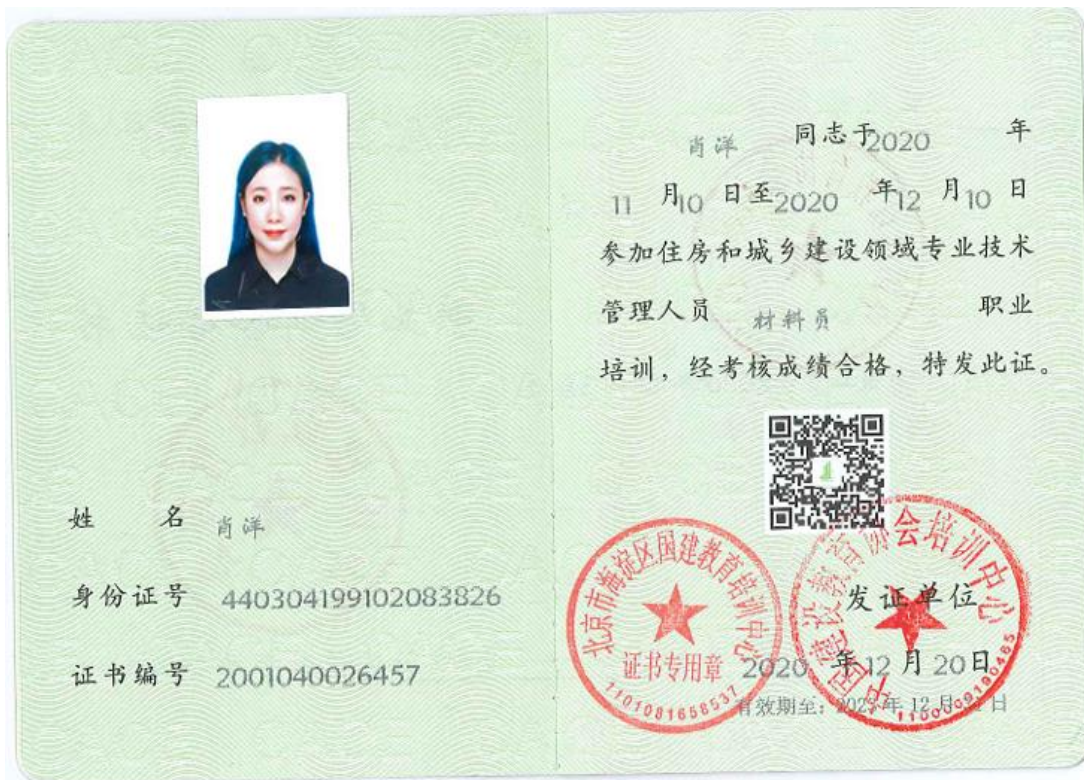 姓 名 肖洋
身份证号 440304199102083826
证书编号 2001040026457
肖洋 同志于2020 年
11 月10 日至2020 年12 月10 日
参加住房和城乡建设领域专业技术
管理人员 材料员 职业
培训，经考核成绩合格，特发此证。
北京市海淀区国建教育培训中心
证书专用章
1101081658537
中国建设教育协会培训中心
发证单位
2020 年12 月 20日
有效期至：2023年 12月 日